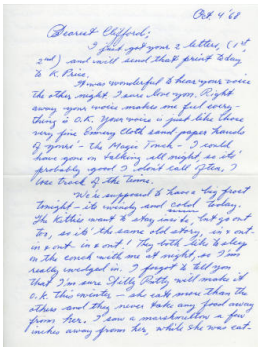 Oct. 4 '68
Dearest Clifford:
I just got your 2 letters, (1st,
2nd) and will send that print today
to K. Price.
It was wonderful to hear your voice
the other night I sure love you. Right
away your voice makes me feel every-
thing is O.K. Your voice is just like those
very fine Emery Cloth sand paper hands
of yours - the Magic Touch - I could
have gone on talking all night so it's
probably good I don't call often, I
lose track of the time.
We're supposed to have a big frost
tonight - its windy and cold today.
The Kitties want to stay inside, but go out
too, so it's the same old story, in & out -
in & out - in & out! They both like to sleep
on the couch with me at night, so I'm
really wedged in. I forgot to tell you
that I'm sure Itty Patty will make it
O.K. this winter - she eats more than the
others - and they never take any food away
from her. I saw a marshmallow a few
inches away from her, while she was eat-